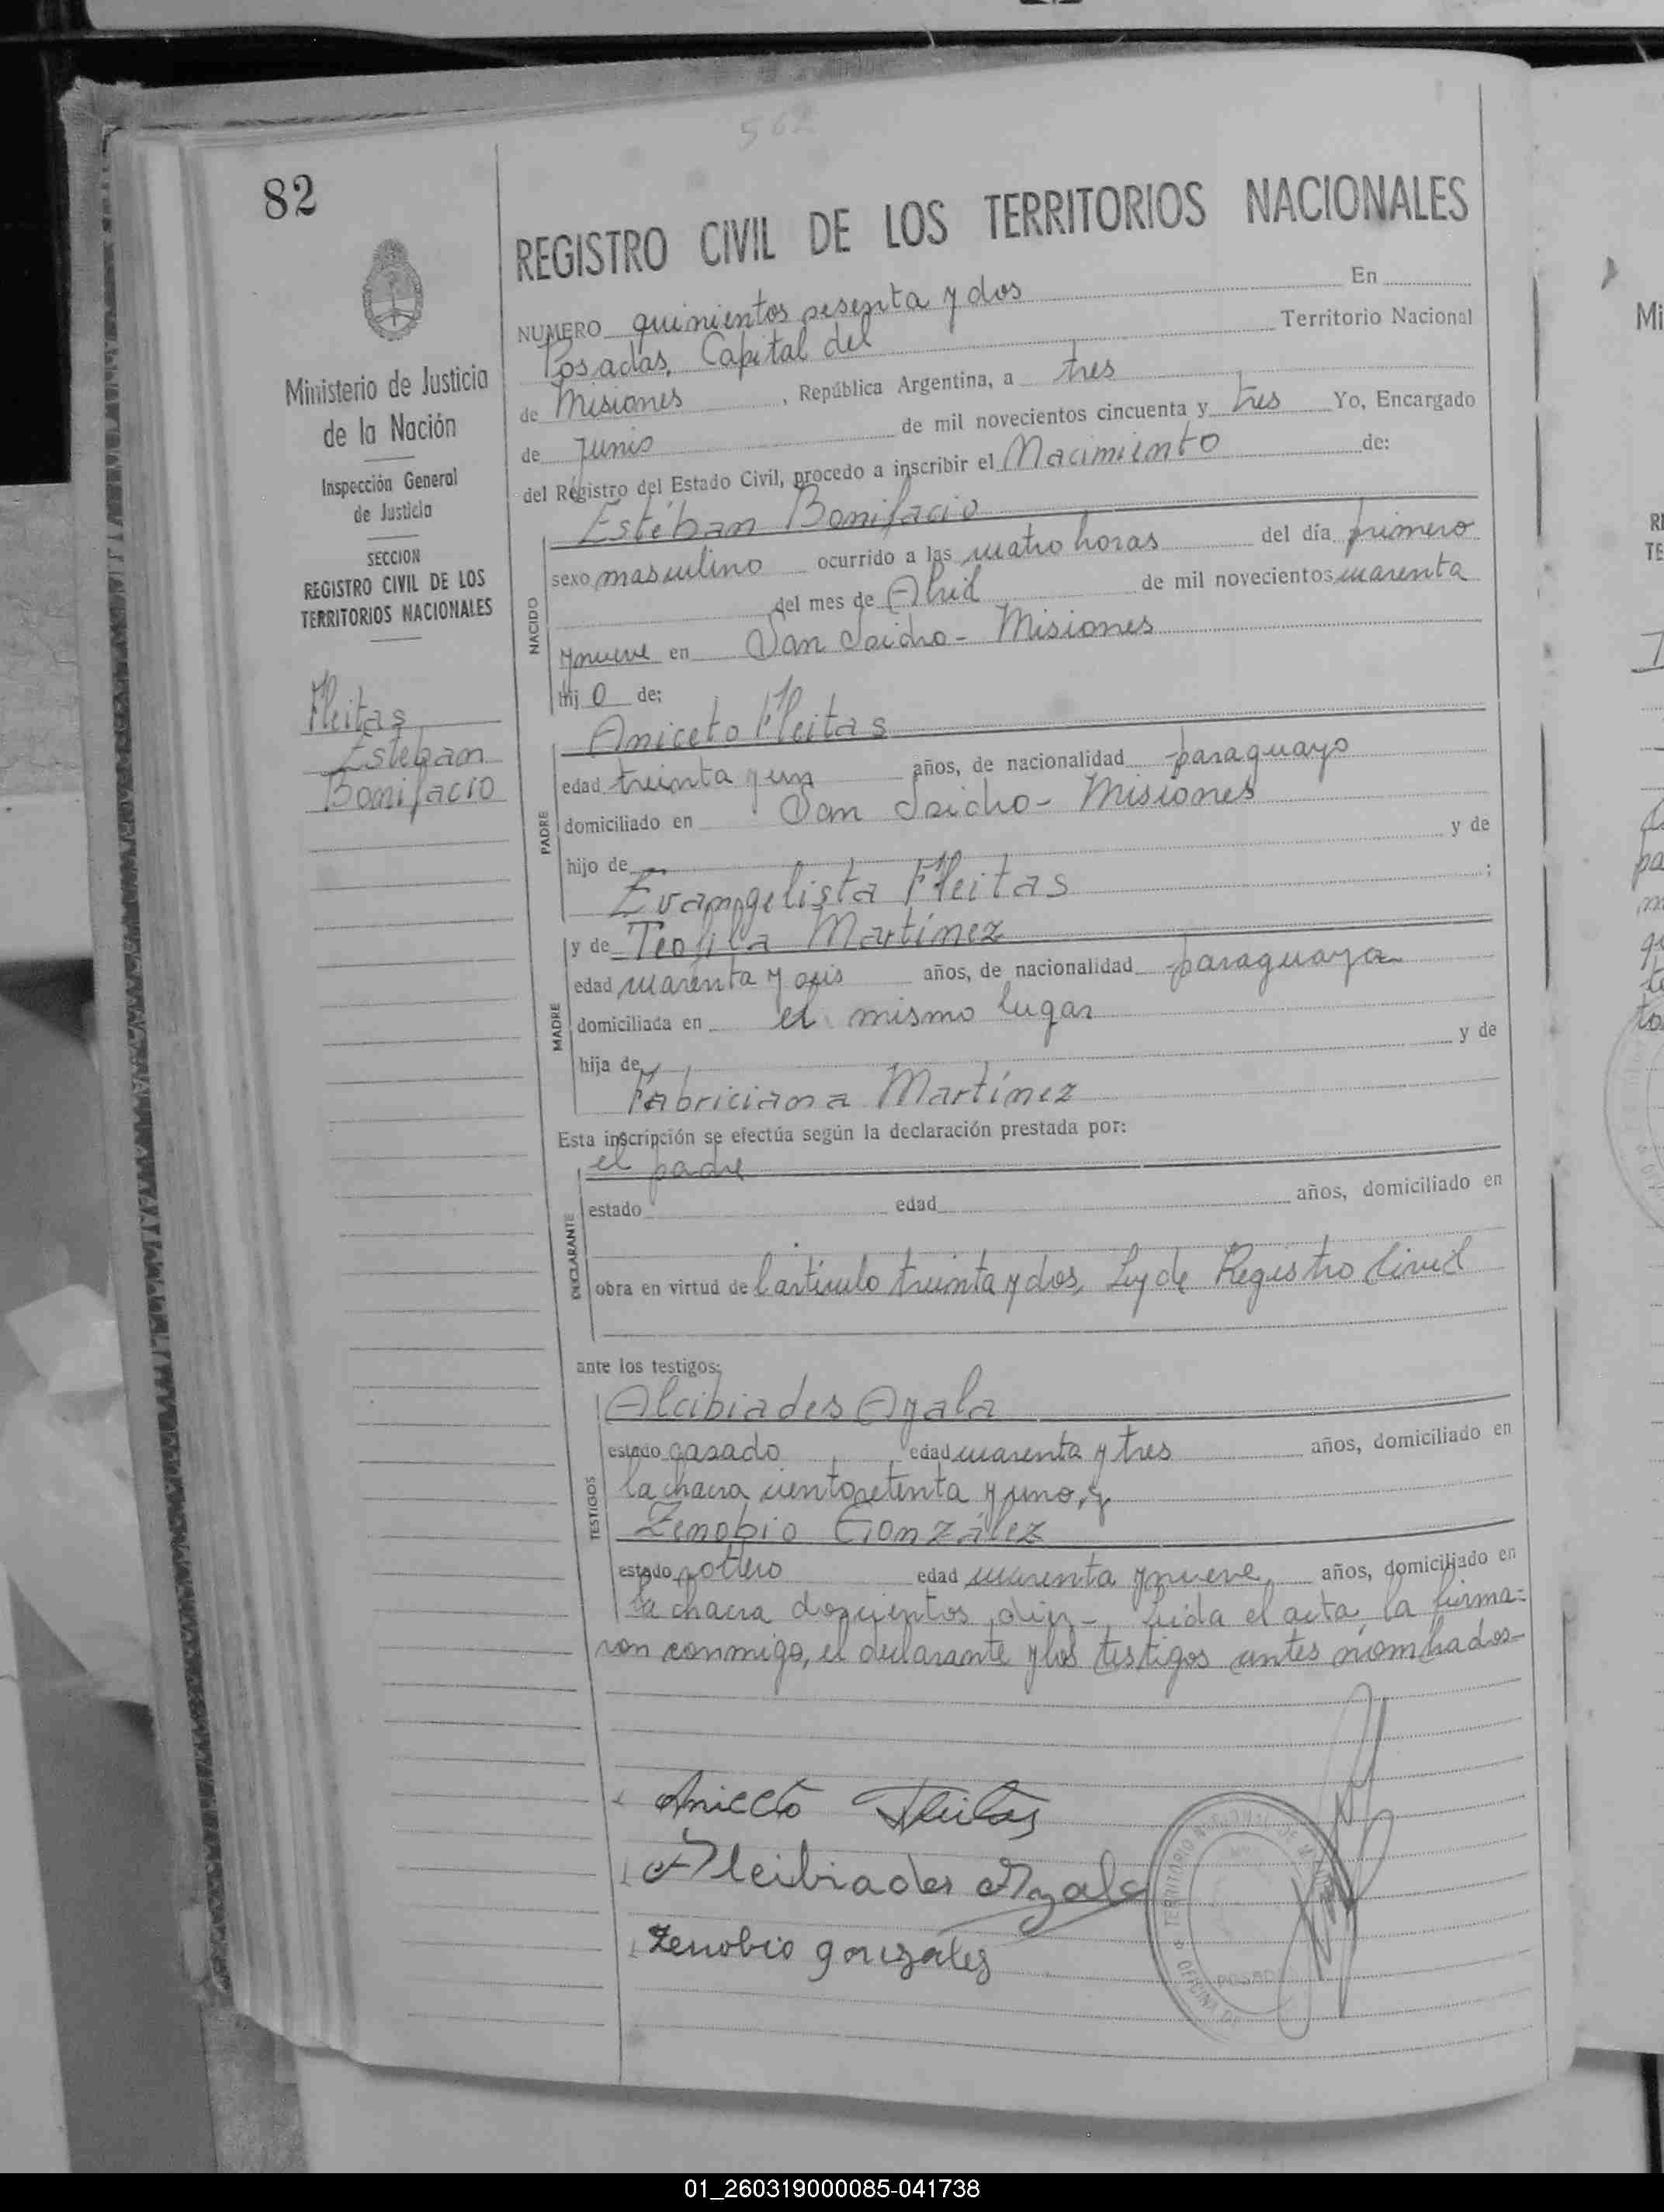 562
82
REGISTRO CIVIL DE LOS TERRITORIOS NACIONALES
NUMERO quinientos sesenta y dos En
Posadas, Capital del Territorio Nacional
de Misiones, República Argentina, a tres
de Junio de mil novecientos cincuenta y tres Yo, Encargado
del Registro del Estado Civil, procedo a inscribir el Nacimiento de:
Estéban Bonifacio
NACIDO
sexo masculino ocurrido a las cuatro horas del día primero
del mes de Abril de mil novecientos cuarenta
y nueve en San Isidro - Misiones
hij o de:
Aniceto Fleitas
PADRE
edad treinta y un años, de nacionalidad paraguayo
domiciliado en San Isidro - Misiones
hijo de y de
Evangelista Fleitas ;
y de Teofila Martínez
MADRE
edad cuarenta y seis años, de nacionalidad paraguaya
domiciliada en el mismo lugar
hija de y de
Fabriciana Martínez
Esta inscripción se efectúa según la declaración prestada por:
el padre
DECLARANTE
estado edad años, domiciliado en
obra en virtud de l artículo treinta y dos, Ley de Registro Civil
ante los testigos:
Alcibiades Ayala
TESTIGOS
estado casado edad cuarenta y tres años, domiciliado en
la chacra ciento setenta y uno, y
Zenobio González
estado soltero edad cuarenta y nueve años, domiciliado en
la chacra doscientos diez - Leída el acta, la firma=
ron conmigo, el declarante y los testigos antes nombrados-
Aniceto Fleitas
Alcibiades Ayala
Zenobio gonzales
TERRITORIO NACIONAL DE
OFICINA
POSAD
Ministerio de Justicia
de la Nación
Inspección General
de Justicia
SECCION
REGISTRO CIVIL DE LOS
TERRITORIOS NACIONALES
Fleitas
Esteban
Bonifacio
Mi
01_260319000085-041738